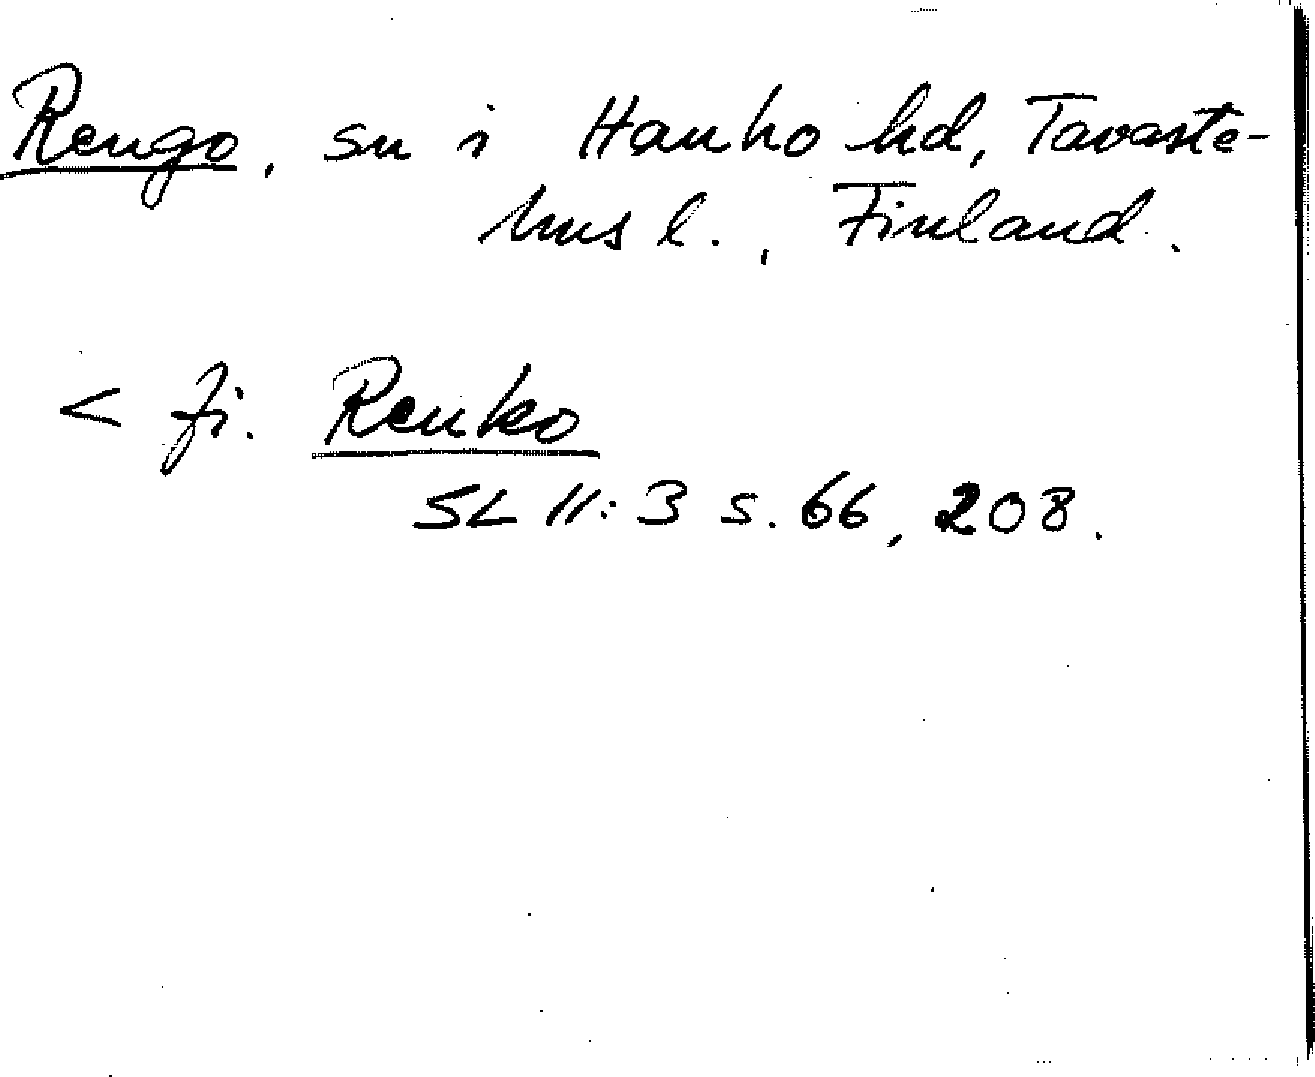 Rengo, sn i Hauho hd, Tavaste-
hus l., Finland.
< fi. Renko
SL 11:3 s. 66, 208.